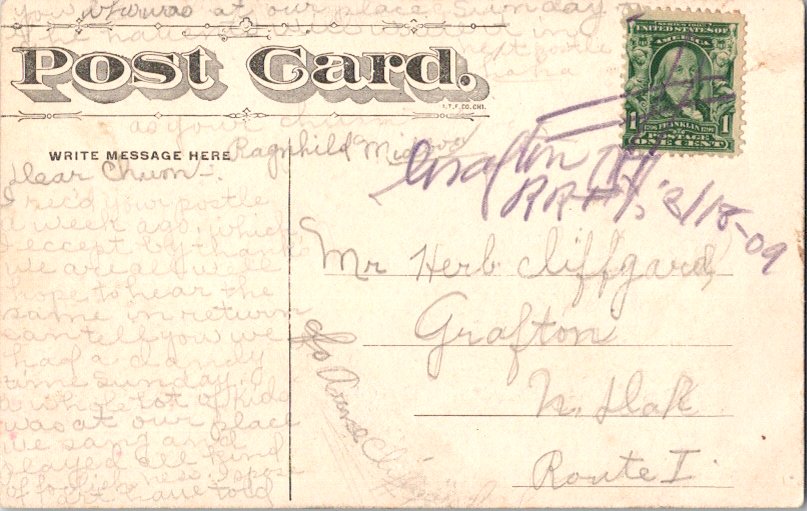 you who was at our place Sunday
next postle
Post Card.
as your chum
Ragnhild
WRITE MESSAGE HERE
Dear Chum:-
I rec'd your postle
a week ago, which
I except by thanks
we are all well
hope to hear the
same in return
can tell you we
had a dandy
time Sunday,
a whole lot of kids
was at our place
we sang and
played all kind
of foolishness. I spose
Art have told
SERIES 1902
UNITED STATES OF
AMERICA
1 FRANKLIN 1
POSTAGE
ONE CENT
Grafton
RR#1, 2/18-09
Mr Herb Cliffgard,
Grafton
N. Dak
Route I.
c/o